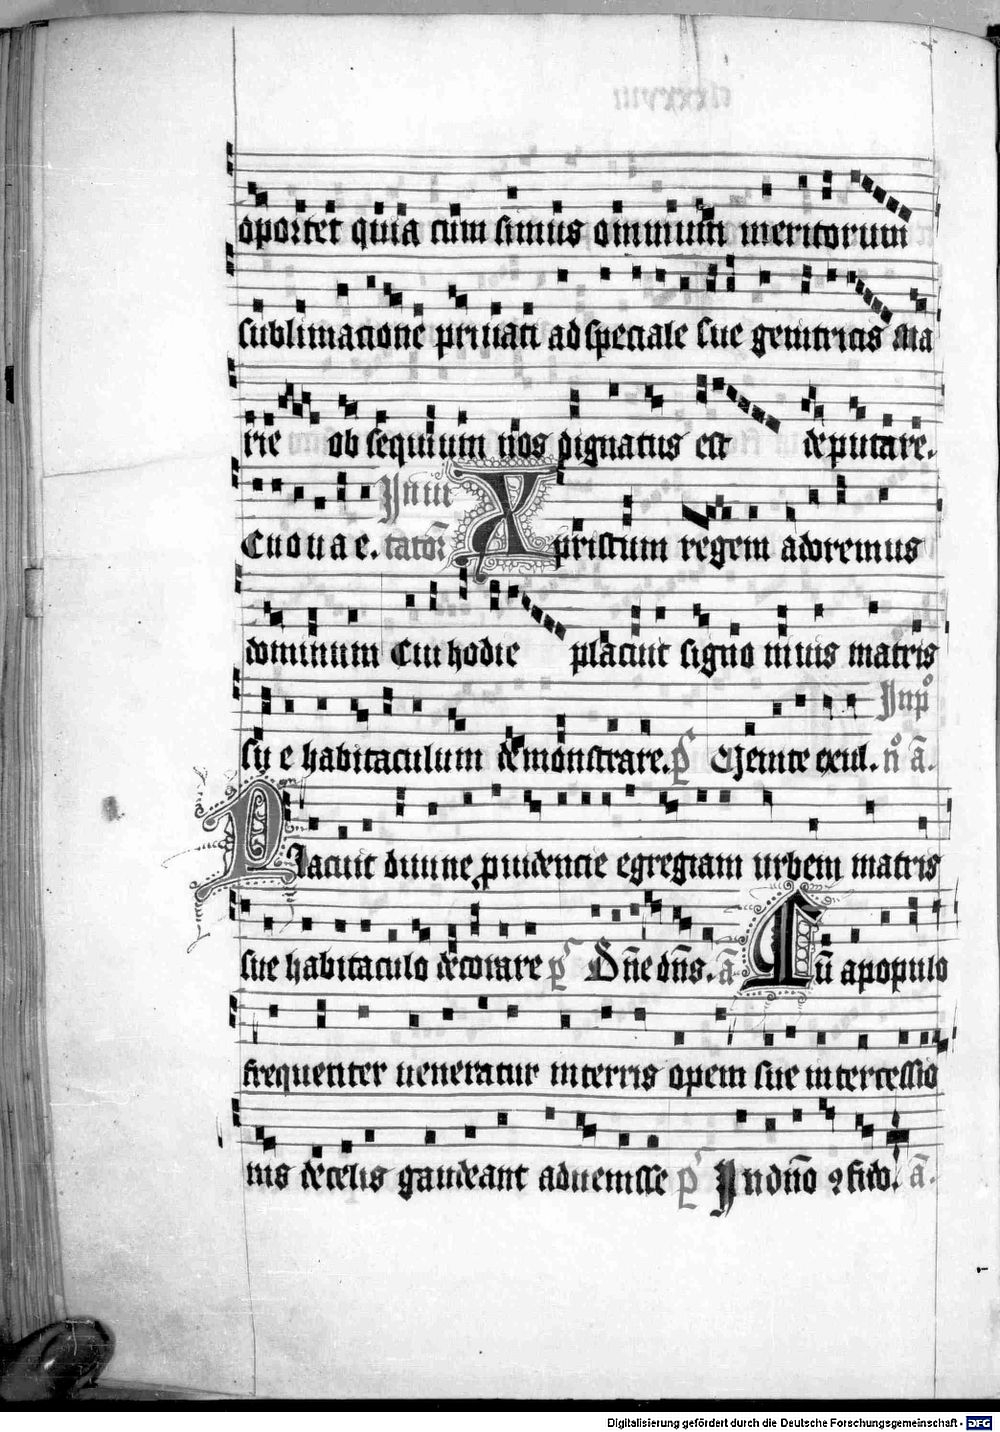 oportet quia cum simus omnium meritorum
sublimacione priuati ad speciale sue genitricis Ma
rie ob sequium nos dignatus est deputare.
Euouae. Inui tator Xpristum regem adoremus
dominum Cui hodie placuit signo niuis matris
sue habitaculum demonstrare. ps Uenite exul. In po no a.
Placuit diuine prouidencie egregiam urbem matris
sue habitaculo decorare ps Dne dns. a Cu a populo
frequenter ueneratur in terris opem sue intercessio
nis de celis gaudeant aduenisse ps In dno ꝯfido. a.
Digitalisierung gefördert durch die Deutsche Forschungsgemeinschaft - DFG